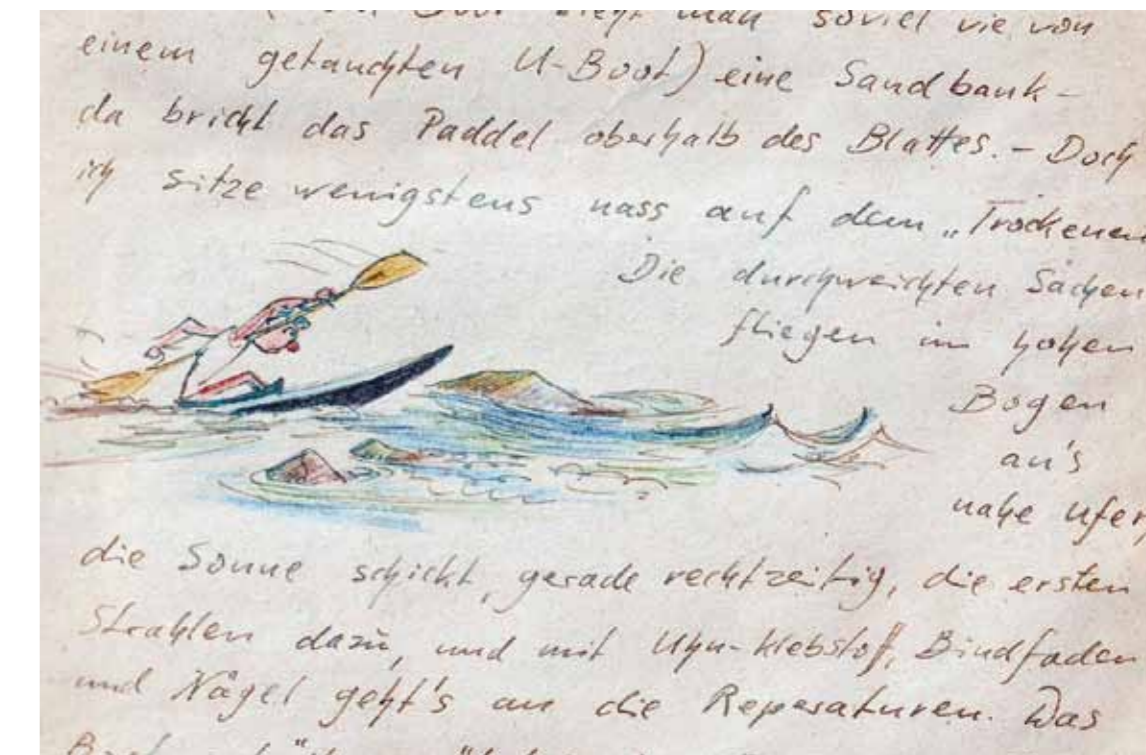 Boot sieht man soviel wie von
einem getauchten U-Boot) eine Sandbank -
da bricht das Paddel oberhalb des Blattes. - Doch
ich sitze wenigstens nass auf dem „Trockenen
Die durchweichten Sachen
fliegen im hohen
Bogen
an's
nahe Ufer,
die Sonne schickt, gerade rechtzeitig, die ersten
Strahlen dazu, und mit Uhu-Klebstoff, Bindfaden
und Nägel geht's an die Reparaturen. Das